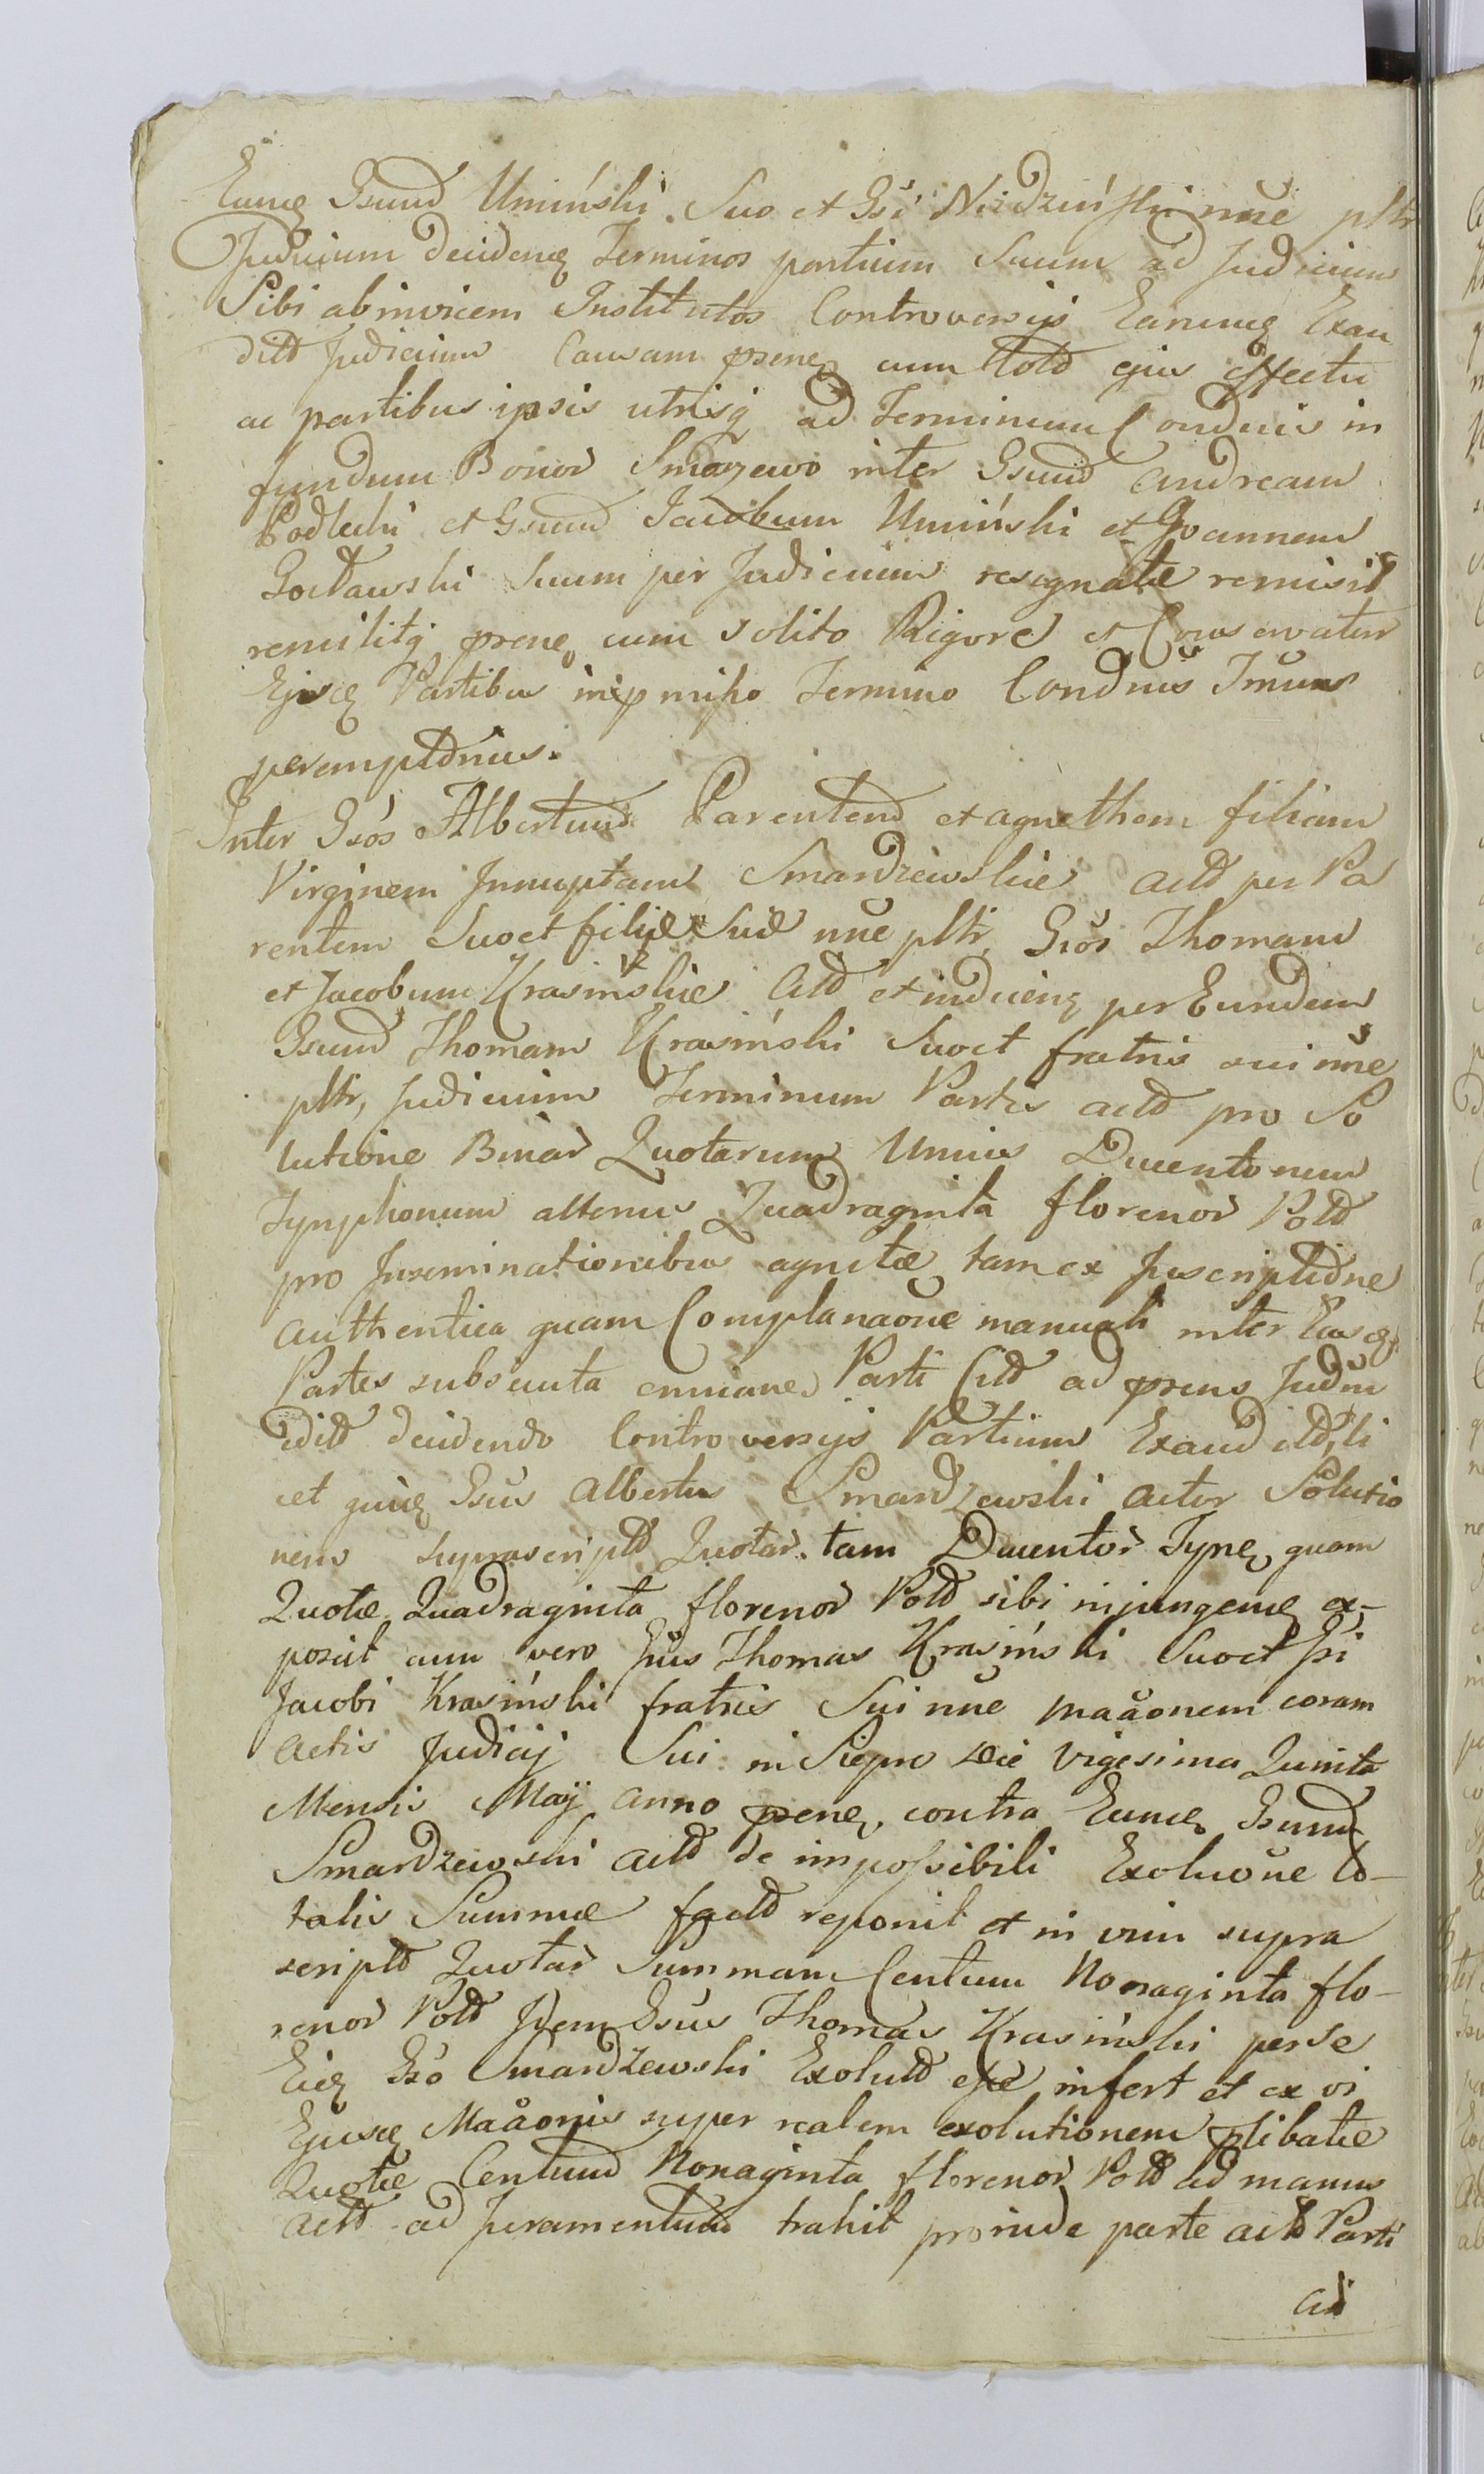 Eunq Gsum Umiński Suo et Gsi Niedziński nne pltr
Judicium decidenq Terminos partium Suum ad Judicium
Sibi abinvicem Institutos Controversijs Earumq Exau
ditt Judicium Causam prsenq cum totd ejus effectu
ac partibus ipsis utrisq ad Terminum Condicis in
fundum Bonor Smarzewo inter Gsum Andream
Podlecki et Gsum Jacobum Umiński et Joannem
Gocławski Suum per Judicium resignate remisit
remititq prsenq cum solito Rigore et Conservatur
Ejusq Partibus in pmisso Termino Condnis Tmus
peremptorius.
Inter Gsos Albertum Parentem et agnethem filiam
Virginem Innuptam Smardzewskie actd per Pa
rentem Suo et filiæ Suæ nne pltr, Gsos Thomam
et Jacobum Krasińskie Citd et inducenq per Eundem
Gsum Thomam Krasiński Suo et fratris sui nne
pltr, Judicium Terminum Partis actd pro So
lutione Binar Quotarum Unius Ducentorum
Tynphonum alterius Quadraginta florenor Pold
pro Inseminationibus agnitæ tam ex Inscriptione
authentica quam Complanaone manuali inter Easq
Partes subsecuta Parti Citd ad prsens Judm
editd decidendo Controversijs Partium Exauditd, li
cet Gsus Albertus Smardzewski actor Solutio
nem suprascriptd Quotar. tam Ducentor Tynq quam
Quotæ Quadraginta florenor Pold sibi injungenq ex-
poscit cum vero Gsus Thomas Krasiński Suo et Gsi
Jacobi Krasiński fratris Sui nne Maãonem coram
actis Judicij Sui in Siepro die Vigesima Quinta
Mensis Maÿ anno prsenq, contra Eunq Gsum
Smardzewski actd de impossibili Exoluone to-
talis Summæ factd reponit et in vim supra
scriptd Quotar Summam Centum Nonaginta flo-
renor Pold Idem Gsus Thomas Krasiński per Se
Eidq Gso Smardzewski Exolutd esse infert et ex vi
Ejusq Maãonis super realem exolutionem plibatæ
Quotæ Centum Nonaginta florenor Pold ad manus
actd ad Juramentum trahit proinde parte actd Parti
Cit